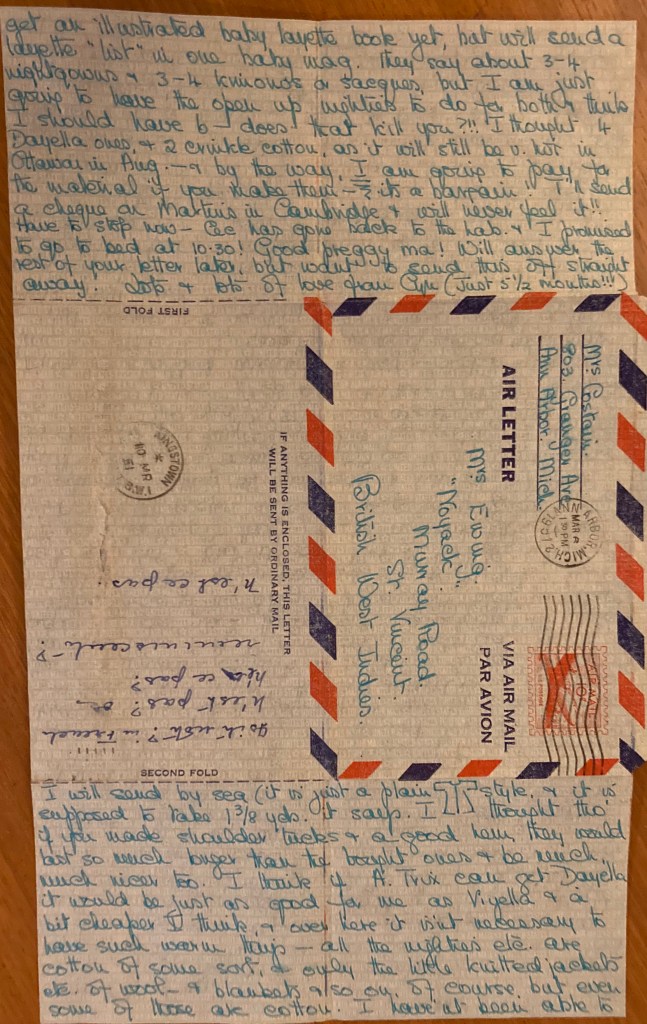 get an illustrated baby layette book yet, but will send a
layette "list" in one baby mag. They say about 3-4
nightgowns & 3-4 kimonos or sacques, but I am just
going to have the open up nighties to do for both & think
I should have 6 - does that kill you?!! I thought 4
Dayella ones, & 2 crinkle cotton, as it will still be v. hot in
Ottawa in Aug. - & by the way, I am going to pay for
the material if you make them - its a bargain!! I'll send
a cheque on Martins in Cambridge & will never feel it!!
Have to stop now - Cec has gone back to the lab. & I promised
to go to bed at 10.30! Good preggy ma! Will answer the
rest of your letter later, but want to send this off straight
away. Lots & lots of love from (Just 5 1/2 months!!!)
FIRST FOLD
KINGSTOWN
10 MR
51
IF ANYTHING IS ENCLOSED, THIS LETTER
WILL BE SENT BY ORDINARY MAIL
in French
n'est pas? or
ce pas?
reminiscent-?
n'est ce pas.
SECOND FOLD
Mrs Costain.
803 Granger Ave
Ann Arbor. Mich.
AIR LETTER
Mrs Ewing.
"Noyack"
Murray Road.
St. Vincent.
British West Indies.
VIA AIR MAIL
PAR AVION
ANN ARBOR, MICH.
MAR
1 30 PM
AIR MAIL
10¢
I will send by sea (it is just a plain style, & it is
supposed to take 1 3/8 yds. it says. I thought tho'
if you made shoulder tucks & a good hem, they would
last so much longer than the bought ones & be much,
much nicer too. I think if A. Trix can get Dayella
it would be just as good for me as Viyella & a
bit cheaper I think, & over here it isn't necessary to
have such warm things - all the nighties etc. are
cotton of some sort, & only the little knitted jackets
etc. of wool - & blankets & so on, of course, but even
some of those are cotton. I haven't been able to